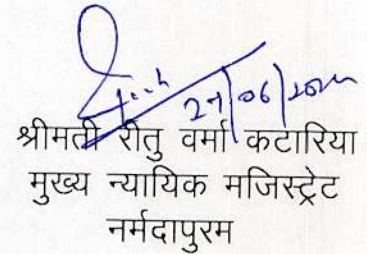 27/06/2024
श्रीमती रीतु वर्मा कटारिया
मुख्य न्यायिक मजिस्ट्रेट
नर्मदापुरम